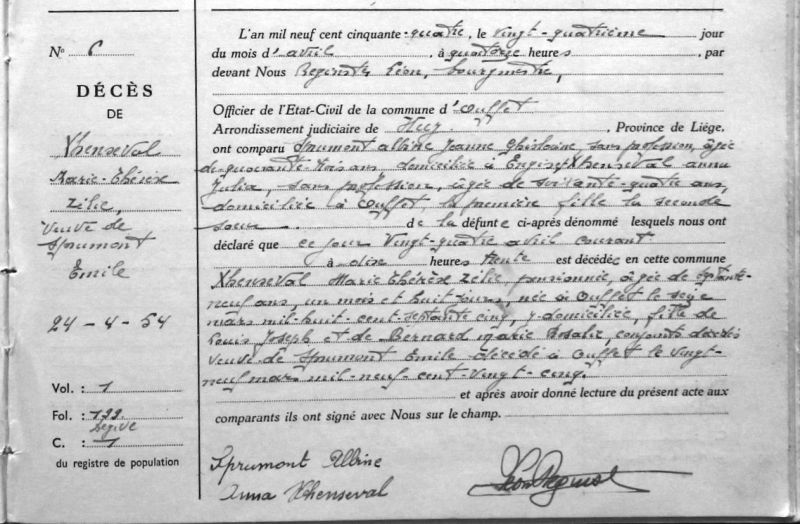 N° 6
DÉCÈS
DE
Xhenseval
Marie-Thérèse
Zélie,
veuve de
Sprumont
Emile
24 - 4 - 54
Vol. : 1
Fol. : 199
C. : 1
du registre de population
L'an mil neuf cent cinquante-quatre, le vingt-quatrième jour
du mois d'avril, à quatorze heures, par
devant Nous Reginster Léon, bourgmestre,
Officier de l'Etat-Civil de la commune d'Ouffet
Arrondissement judiciaire de Huy, Province de Liége,
ont comparu Sprumont Albine Jeanne Ghislaine, sans profession, âgée
de quarante-trois ans, domiciliée à Engis, Xhenseval Anna
Julia, sans profession, âgée de soixante-quatre ans,
domiciliée à Ouffet, la première fille la seconde
soeur de la défunte ci-après dénommé lesquels nous ont
déclaré que ce jour vingt-quatre avril courant
à dix heures trente est décédée en cette commune
Xhenseval Marie Thérèse Zélie, pensionnée, âgée de septante-
neuf ans, un mois et huit jours, née à Ouffet le seize
mars mil-huit-cent-septante cinq, y domiciliée, fille de
Louis Joseph et de Bernard Marie Rosalie, conjoints décédés
veuve de Sprumont Emile décédé à Ouffet le vingt-
neuf mars mil-neuf-cent-vingt-cinq.
et après avoir donné lecture du présent acte aux
comparants ils ont signé avec Nous sur le champ.
Sprumont Albine
Anna Xhenseval